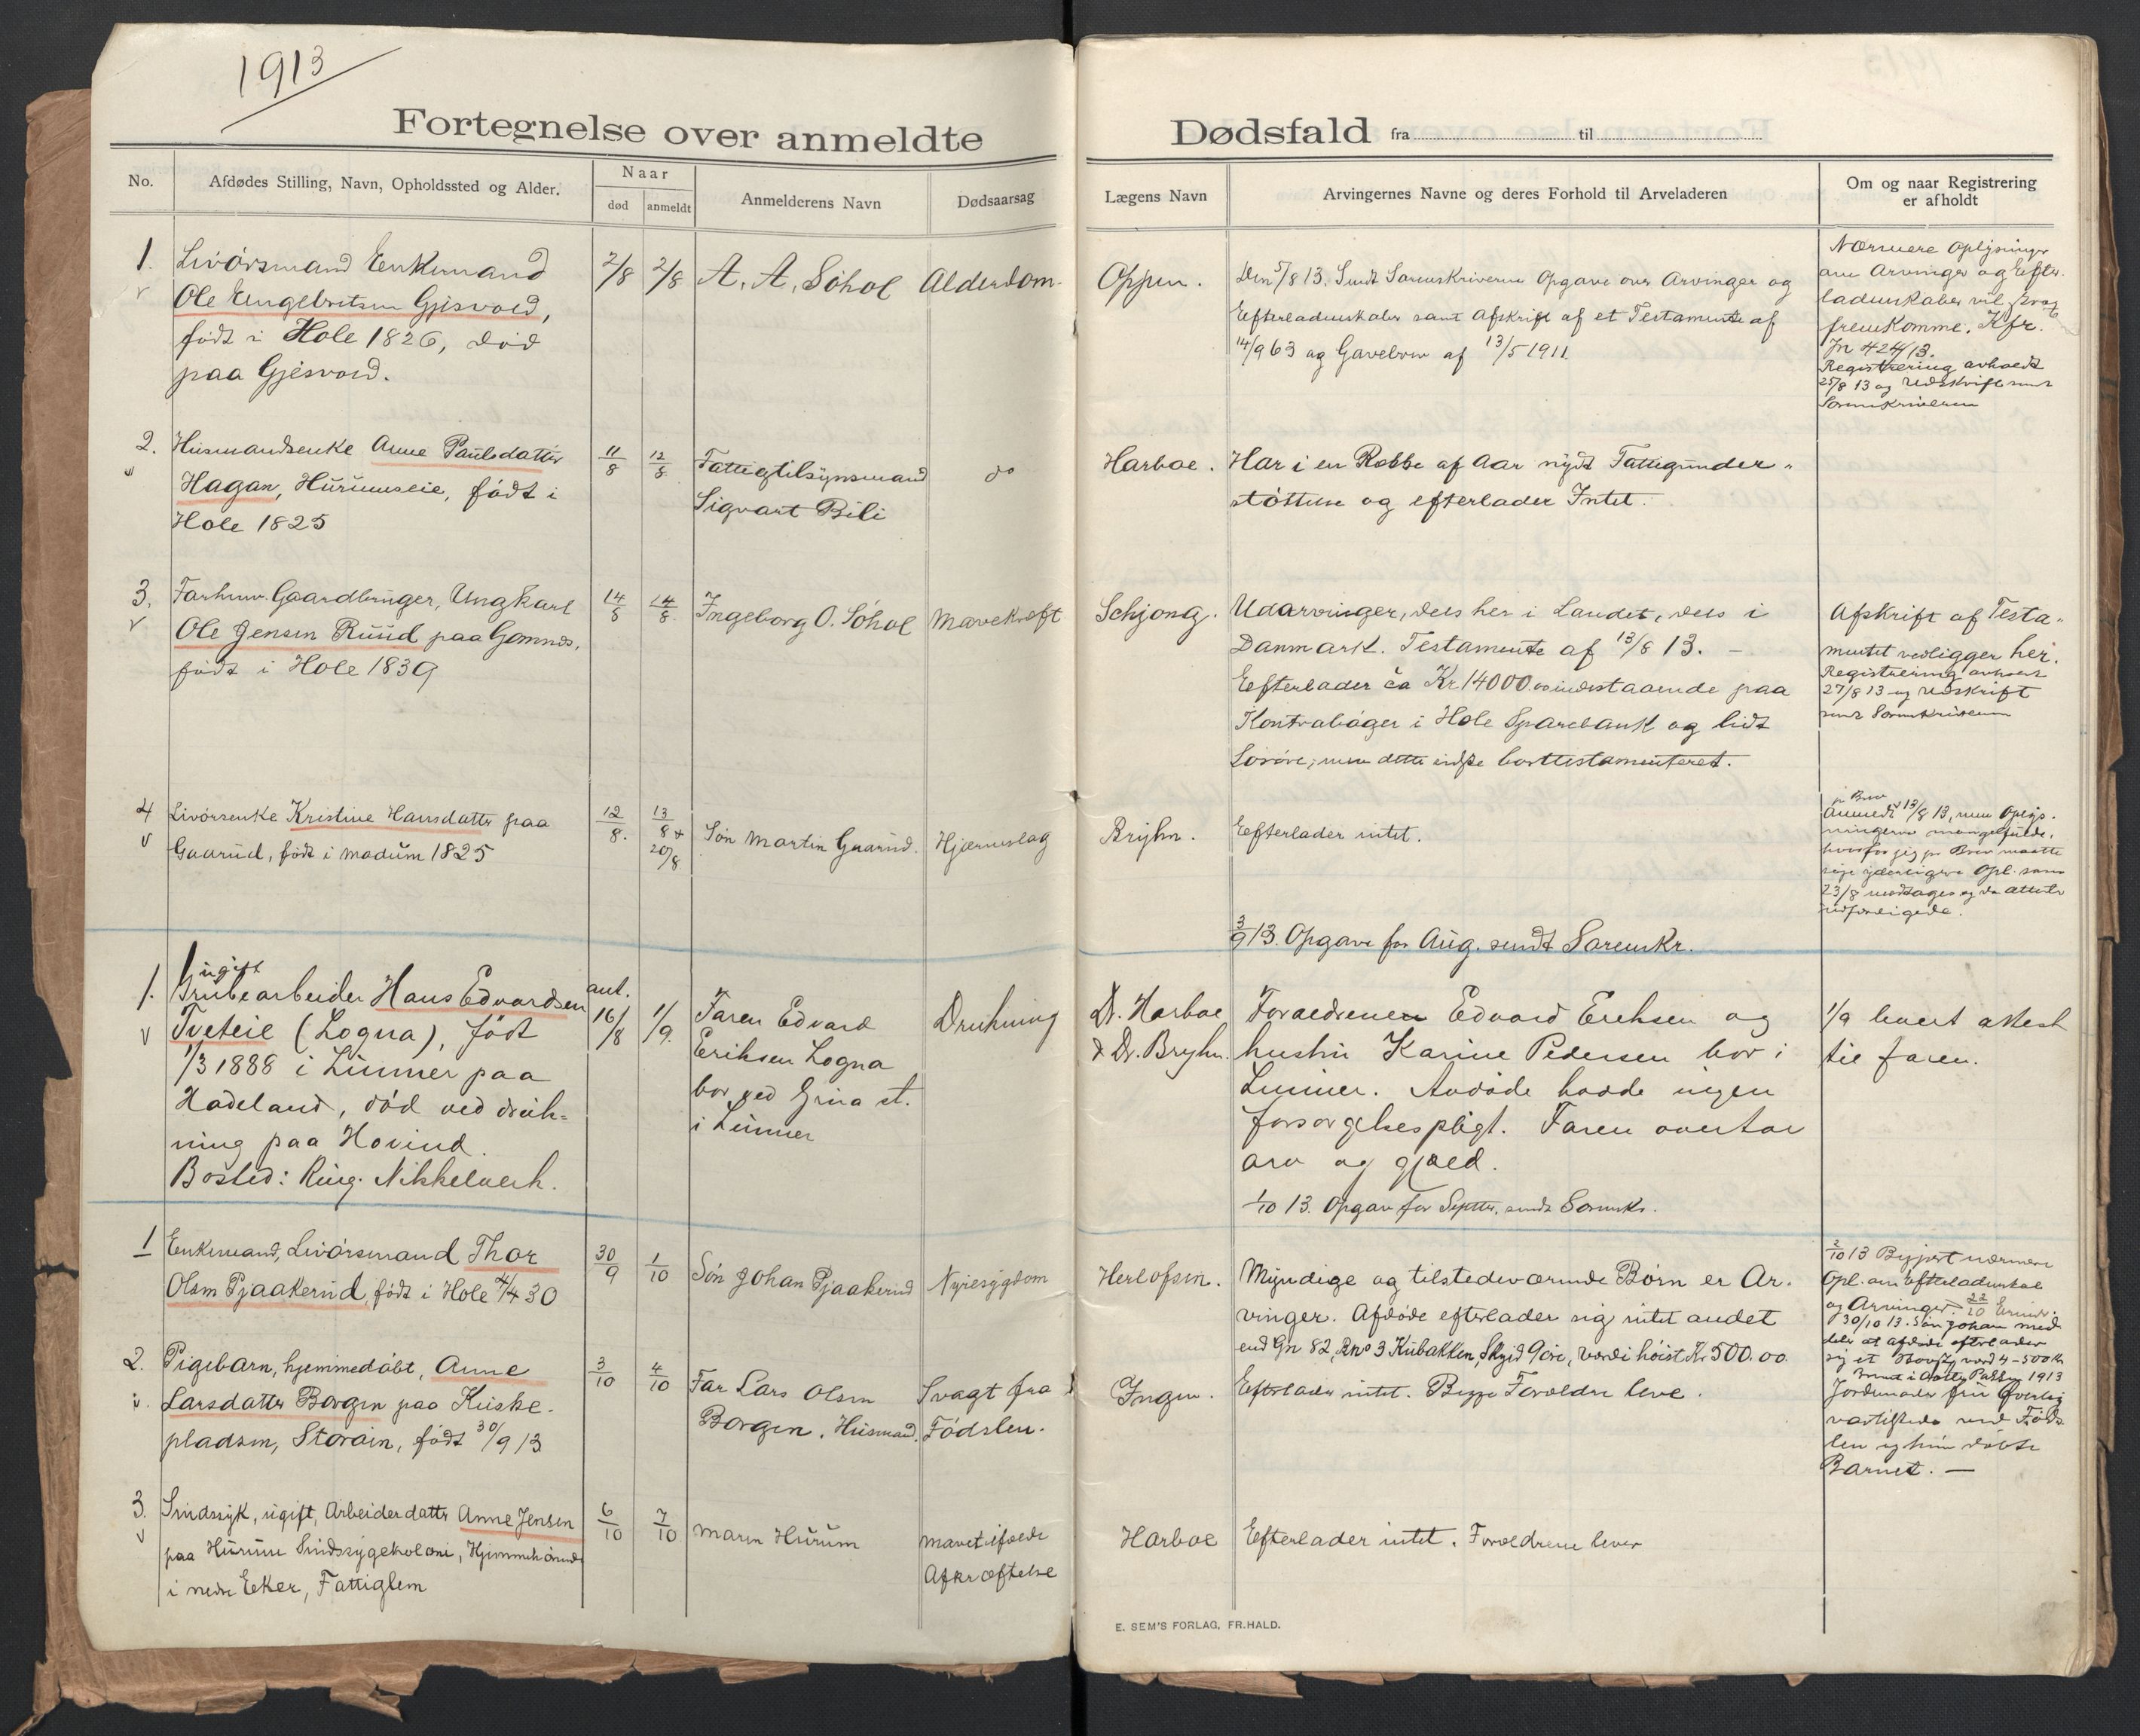 1913
Fortegnelse over anmeldte
Dødsfald fra til
No.
Afdødes Stilling, Navn, Opholdssted og Alder.
Naar
død
anmeldt
Anmelderens Navn
Dødsaarsag
Lægens Navn
Arvingernes Navne og deres Forhold til Arveladeren
Om og naar Registrering
er afholdt
1. Livörsmand Enkemand
Ole Engebretsen Gjesvold,
født i Hole 1826, död
paa Gjesvold.
2/8 2/8 A. A. Söhol Alderdom.
Oppen.
Den 5/8 13. Sendt Sorenskriveren Opgave over Arvinger og
Efterladenskaber samt Afskrift af et Testamente af
14/9 63 og Gavebrev af 13/5 1911
Nærmere Oplysninger
om Arvinger og Efter-
ladenskaber vil
fremkomme. Kfr.
Jn 424/13.
Registrering avholdt
25/8 13 og Udskrift sendt
Sorenskriveren
2. Husmandsenke Anne Paulsdatter
Hagan, Hurumseie, født i
Hole 1825
11/8 12/8 Fattigtilsynsmand
Sigvart Bili
do
Harboe.
Har i en Række af Aar nydt Fattigunder-
støttelse og efterlader Intet.
3. Forhenv. Gaardbruger, Ungkarl
Ole Jensen Ruud paa Gomnes,
født i Hole 1839
14/8 14/8 Ingeborg O. Söhol Mavekræft
Schjong.
Udarvinger, dels her i Landet, dels i
Danmark. Testamente af 13/8 13. –
Efterlader ca Kr 14000.00 indestaaende paa
Kontrabøger i Hole Sparebank og lidt
Lösöre, men dette borttestamenteret.
Afskrift af Testa-
mentet vedligger her.
Registrering avholdt
27/8 13 og Udskrift
sendt Sorenskriveren
4 Livörsenke Kristine Hansdatter paa
Gaarud, født i Modum 1825
12/8. 13/8 +
20/8
Søn Martin Gaarud. Hjerneslag
Bryhn.
Efterlader intet.
pr Brev
Anmeldt 13/8 13, men Oplys-
ningerne mangelfulde,
hvorfor jeg pr Brev maatte
yderligere Opl. som
23/8 modtages og da attesten
udfærdigede.
3/9 13. Opgave for Aug. sendt Sorenskr.
1. ugift
Grubearbeider Hans Edvardsen
Tveteie (Logna), født
1/3 1888 i Lunner paa
Hadeland, död ved druk-
ning paa Hovind.
Bosted: Ring. Nikkelverk.
ant.
16/8 1/9. Faren Edvard
Eriksen Logna
bor ved Grua st.
i Lunner
Drukning
Dr. Harboe
& Dr. Bryhn.
Forældrene Edvard Eriksen og
hustru Karine Pedersen bor i
Lunner. Avdöde hadde ingen
forsørgelsespligt. Faren overtar
arv og gjæld.
1/9 levert attest
til faren.
1/10 13. Opgave for Septbr. sendt Sorenskr.
1 Enkemand, Livörsmand Thor
Olsen Pjaakerud, født i Hole 4/4 30
30/9 1/10 Søn Johan Pjaakerud Nyresygdom
Herlofsen.
Myndige og tilstedeværende Børn er Ar-
vinger. Afdøde efterlader sig intet andet
end Gn 82, Bno 3 Kubakken, Skyld 9 öre, værdi höist Kr 500.00.
2/10 13 Begjært nærmere
Opl. om Efterladenskab
og Arvinger. 22/10
30/10 13. Søn Johan med-
deler at afdøde efterlader
sig et værd 4-500 Kr
2. Pigebarn, hjemmedøbt, Anne
Larsdatter Borgen paa Kiske-
pladsen, Storøin, født 30/9 13
3/10 4/10 Far Lars Olsen
Borgen, Husmand.
Svagt fra
Födslen.
Ingen.
Efterlader intet. Begge Forældre leve.
1913
Jordemoder
ved Föds-
len og hun döbte
Barnet. –
3. Sindssyk, ugift, Arbeiderdatter Anne Jensen
paa Hurum Sindssygekoloni, Hjemmehörende
i nedre Eker, Fattiglem
6/10 7/10 Maren Hurum
Mavetilfælde
Afkræftelse
Harboe
Efterlader intet. Forældrene lever
E. SEM'S FORLAG, FR.HALD.